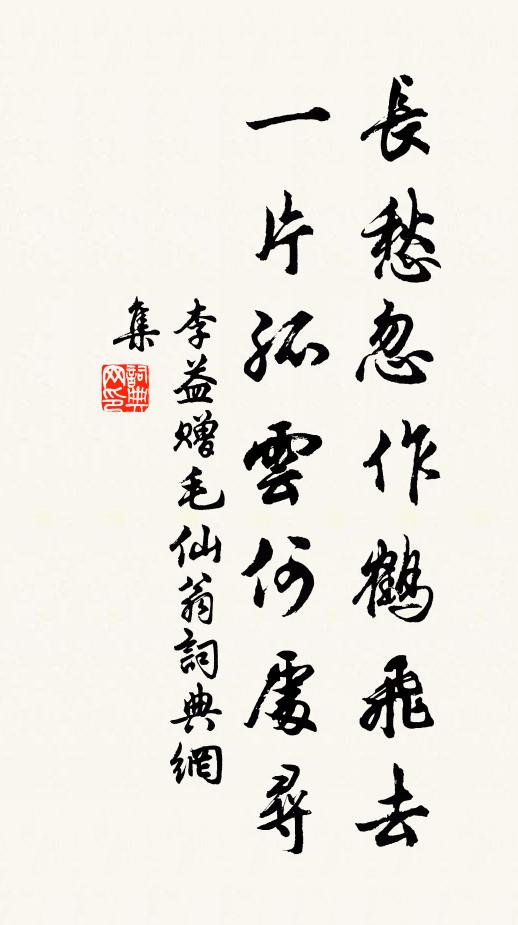 長愁忽作鶴飛去
一片孤雲何處尋
李益赠毛仙翁詞典網
集
詞典网印